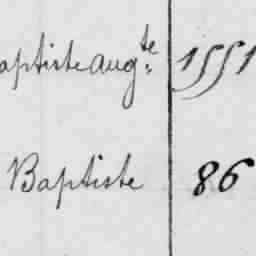 aptiste Aug.te 1551
Baptiste 86